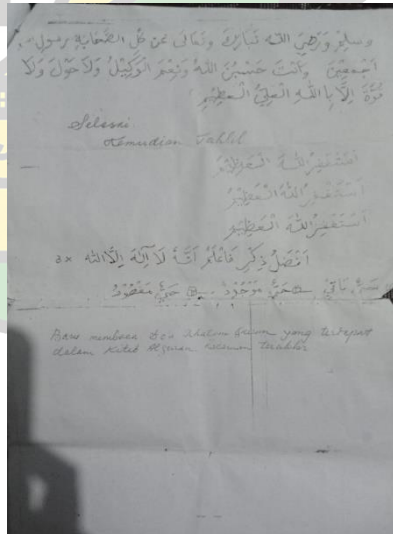 وسلم ورضي الله تبارك وتعالى عن كل الصحابة رسول الله
أجمعين وأنت حسبن الله ونعم الوكيل ولا حول ولا
قوة إلا بالله العلي العظيم
Selesai
Kemudian Tahlil
أستغفر الله العظيم
أستغفر الله العظيم
أستغفر الله العظيم
أفضل ذكر فاعلم أنه لا إله إلا الله 3x
باقي حي موجود حي مقصود
Baru membaca Doa Khatam Quran yang terdapat
dalam Kitab Alquran terakhir